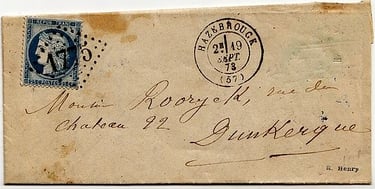 REPUB. FRANC.
17 5
25 C. POSTES 25 C.
HAZEBROUCK
2E 19
SEPT.
73
(57)
Monsieur Rooryck, rue du
chateau 22
Dunkerque
R. Henry